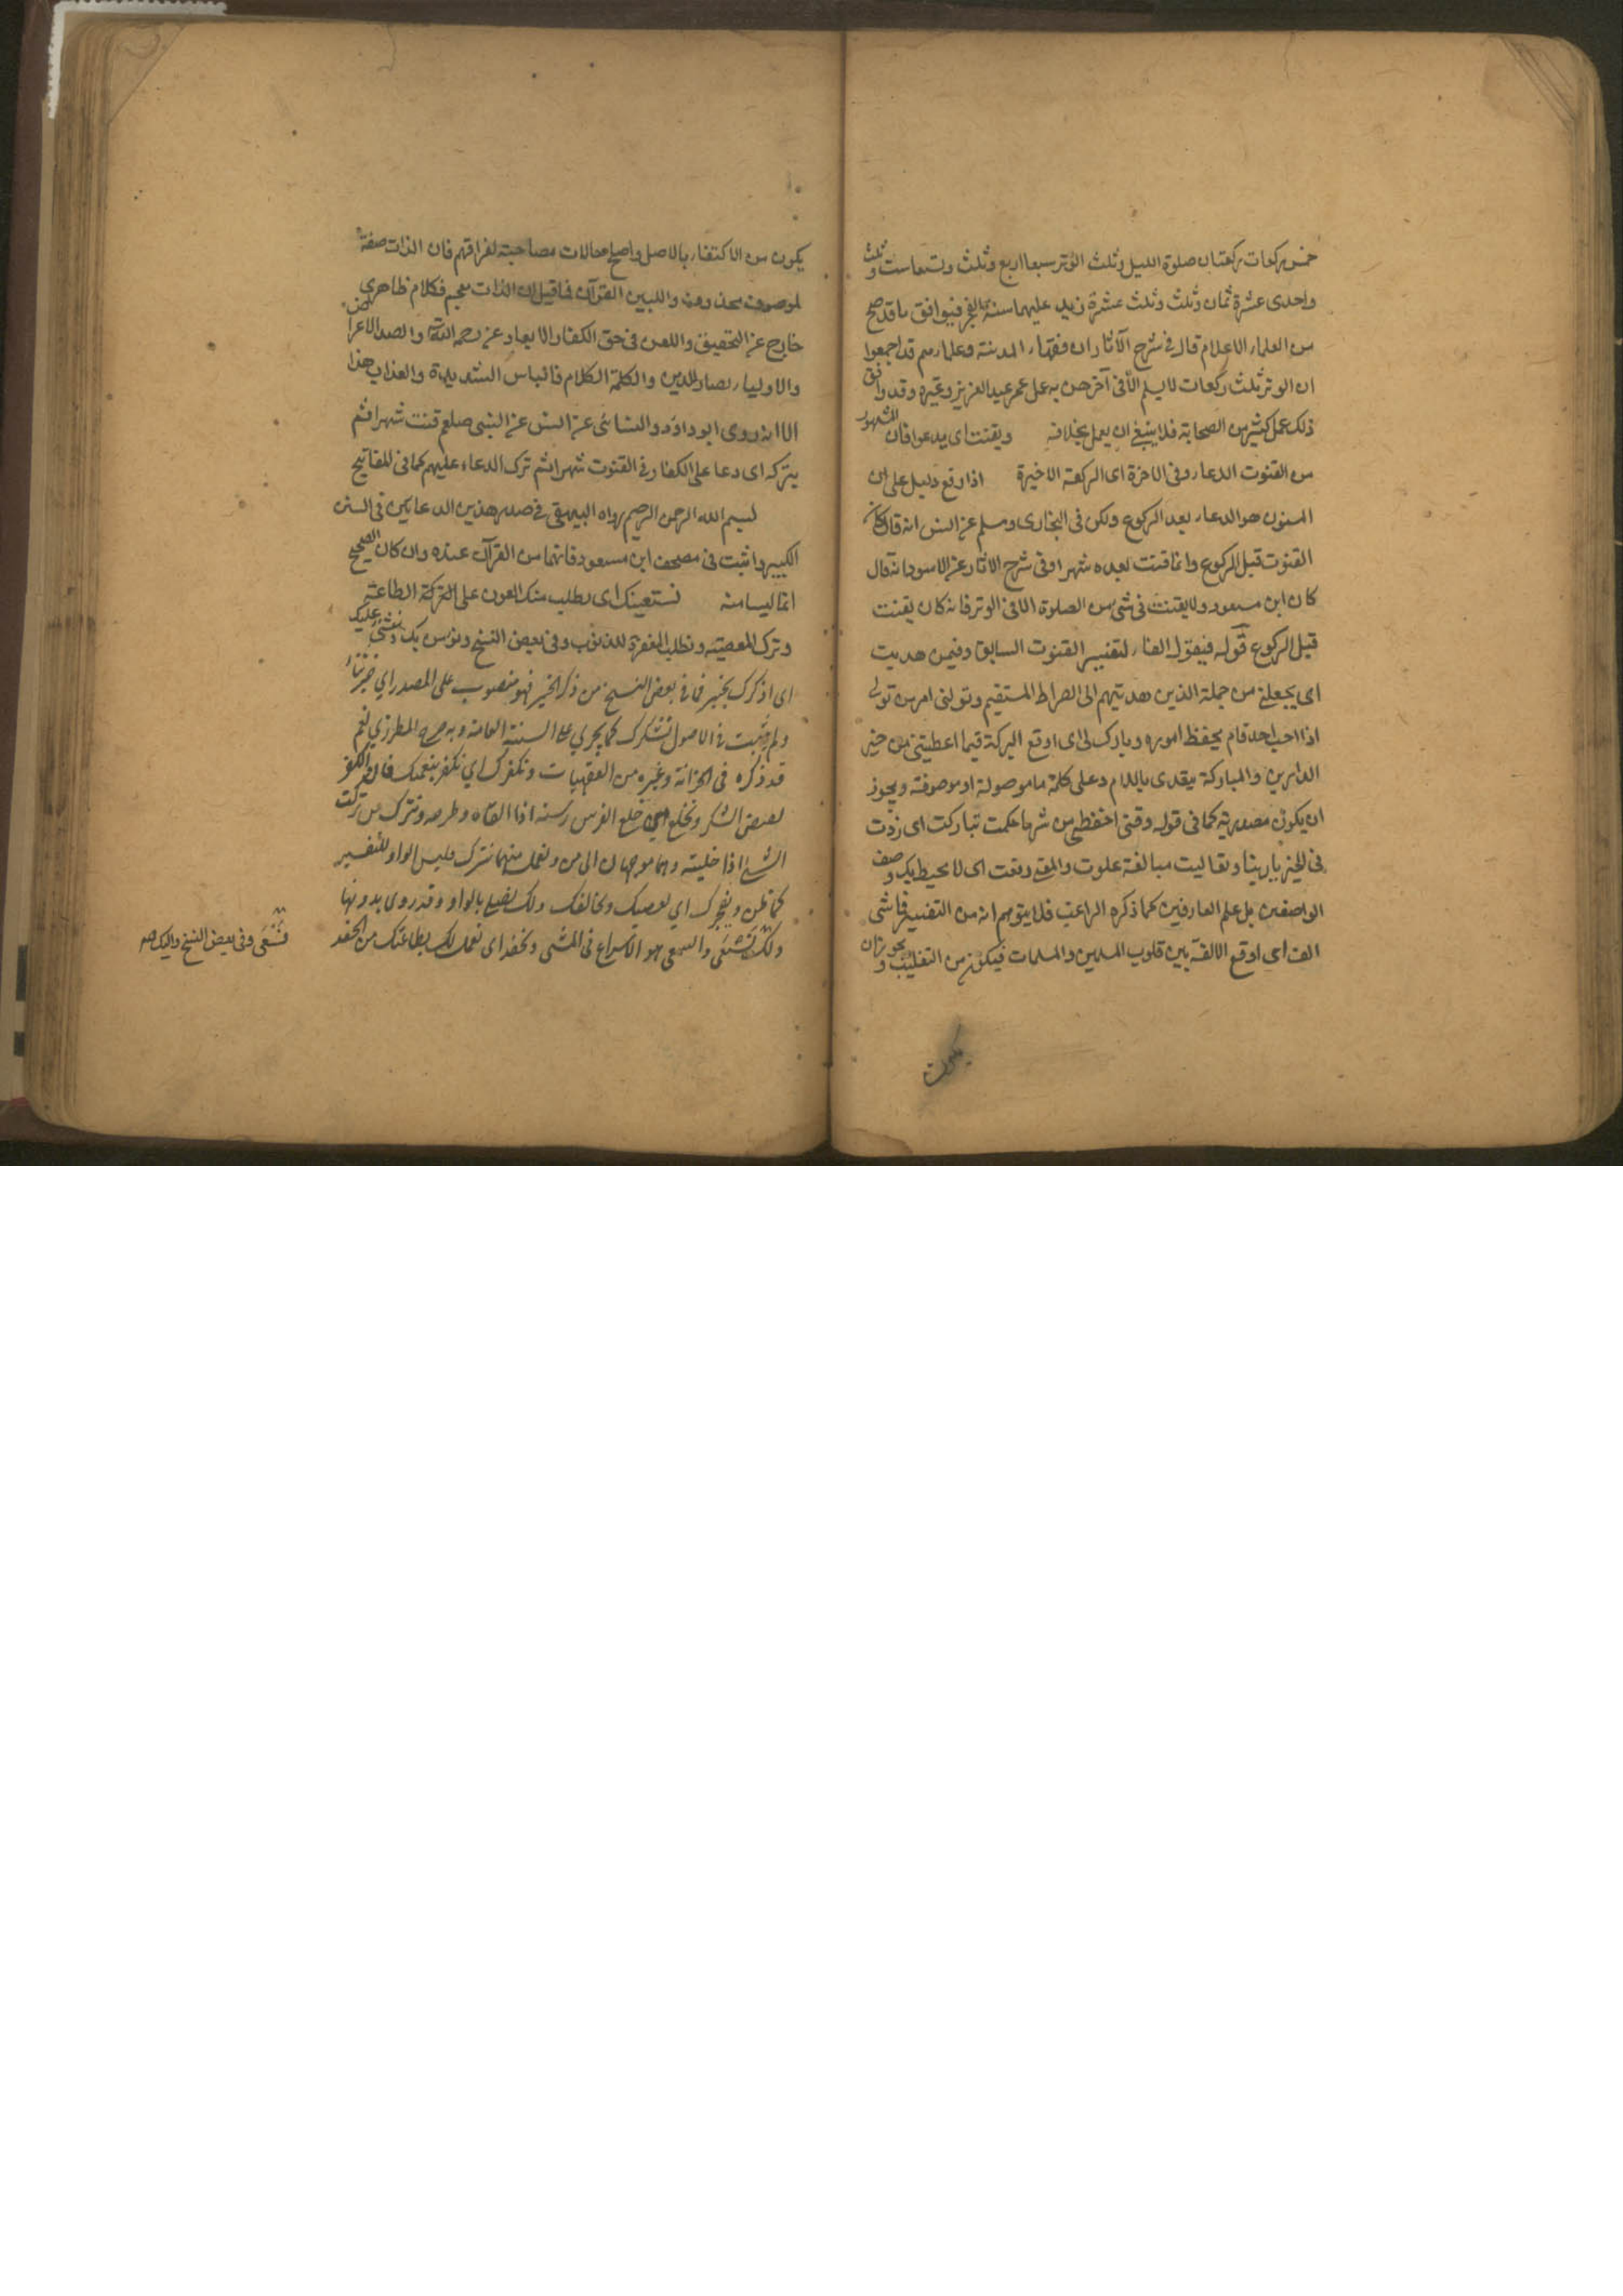 خمس ركعات ركعتان صلوة الليل وثلث الوتر سبعا اربع وثلث وتسعا ست وثلث
واحدى عشرة ثمان وثلث وثلث عشرة زيد عليها سنة الفجر فيوافق ما قد صح
من العلماء الاعلام قال في شرح الآثار ان فقهاء المدينة وعلماءهم قد اجمعوا
ان الوتر ثلث ركعات لا يسلم الا في آخرهن به عمل عمر عبد العزيز وغيره وقد وافق
ذلك عمل كثير من الصحابة فلا ينبغي ان يعمل بخلافه ويقنت اى يدعوا فان المشهور
من القنوت الدعاء وفى الاخرة اى الركعة الاخيرة اذا رفع دليل على ان
المسنون هو الدعاء بعد الركوع ولكن فى البخارى ومسلم عن انس انه قال كان
القنوت قبل الركوع وانما قنت بعده شهرا وفى شرح الاثار عن الاسود انه قال
كان ابن مسعود ولا يقنت فى شىء من الصلوة الا فى الوتر فانه كان يقنت
قبل الركوع قوله فيقول الفاء لتفسير القنوت السابق وفيمن هديت
اى يجعلنى من جملة الذين هديتهم الى الصراط المستقيم وتولنى امر من تولى
اذا احب احد قام بحفظ اموره وبارك لى اى اوقع البركة فيما اعطيتنى من خير
الدارين والمباركة يتعدى باللام وعلى كلمة ما موصولة او موصوفة ويجوز
ان يكون مصدرية كما فى قوله وقنى احفظنى من شر ما حكمت تباركت اى زدت
فى الخير يا ربنا وتعاليت مبالغة علوت ورفعت اى لا يحيط بك وصف
الواصفين بل علم العارفين كما ذكره الراغب فلا يتوهم انه من التفسير فى شى
الف اى اوقع الالفة بين قلوب المسلمين والمسلمات فيكون من التغليب ويجوز ان
يكون
يكون من الاكتفاء بالاصل واصلح حالات مصاحبة لفراقهم فان الذات صفة
لموصوف محذوف والبين القرآن فما قيل ان الذات مقحم فكلام ظاهرى
خارج عن التحقيق واللعن فى حق الكفار الابعاد عن رحمة الله والصد الاعراض
والاولياء انصار الدين والكلمة الكلام فالباس الشديدة والعذاب هذا
الا انه روى ابو داود والنسائى عن انس عن النبى صلعم قنت شهرا ثم
يتركه اى دعا على الكفار فى القنوت شهرا ثم ترك الدعاء عليهم كما فى المفاتيح
بسم الله الرحمن الرحيم رواه البيهقى فى صدر هذين الدعائين فى السنن
الكبير واثبت فى مصحف ابن مسعود فانهما من القرآن عنده وان كان الصحيح
انما ليسا منه نستعينك اى نطلب منك العون على الطاعة
وترك المعصية ونطلب المغفرة للذنوب وفى بعض النسخ ونؤمن بك ونثنى عليك
اى اذكرك بخير فما فى بعض النسخ من ذكر الخير فهو منصوب على المصدر اي خيرثناء
ولم يثبت فى الاصول نشكرك كما يجري على السنة العامة وبه صرح المطرزي نعم
قد ذكره فى الخزانة وغيره من الفقهيات ونكفرك اي نكفر بنعمتك فان الكفر
نقيض الشكر ونخلع من خلع الفرس رسنه اذا القاه وطرحه ونترك من تركت
الشئ اذا خليته وهما موجهان الى من والعمل منهما نترك فليس الواو للتفسير
كما ظن ويفجرك اي يعصيك ويخالفك ولك نصلي بالواو وقد روى بدونها
ولك نسعى والسعى هو الاسراع فى المشى ونحفد اى نعمل لك بطاعتك من الحفد
نسعى وفى بعض النسخ واليك صح